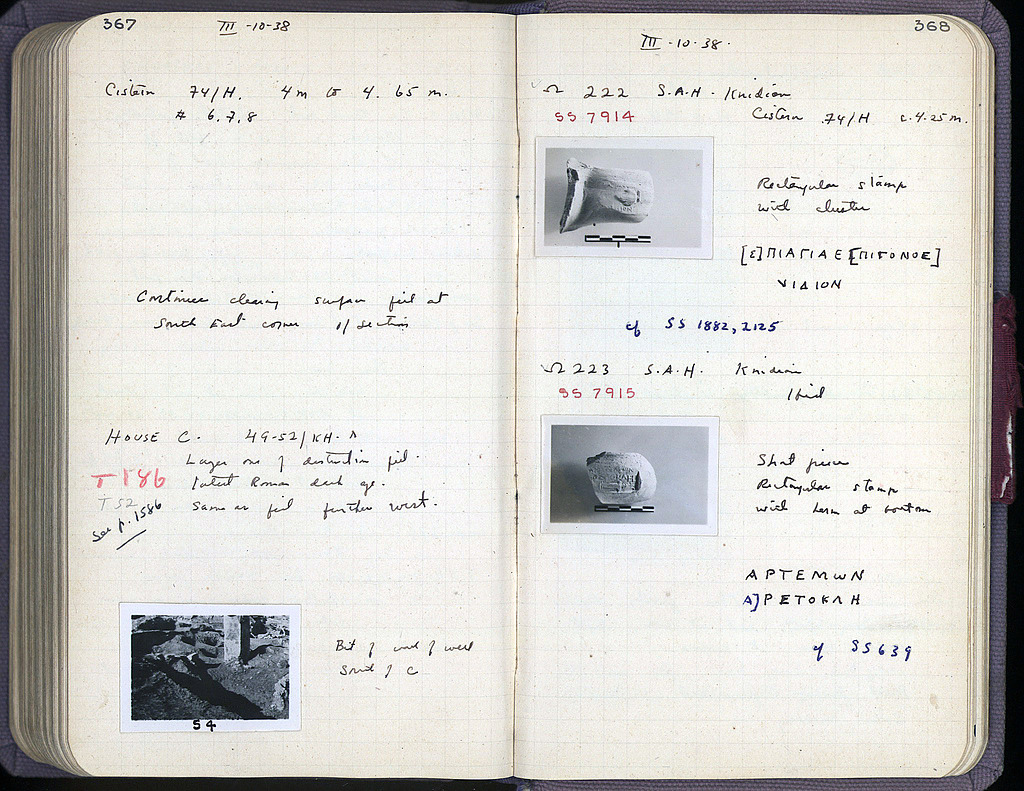 367
III -10-38
Cistern 74/H. 4m to 4.65 m.
# 6.7.8
Continue clearing surface fill at
South East corner of section
HOUSE C. 49-52/KH.
Layer one of destruction fill.
T 186
latest Roman dark age.
T 52
Same as fill further west.
See p. 1586
54
Bit of of west
South of C
368
III -10-38.
Ω 222 S.A.H. Knidian
SS 7914
Cistern 74/H c. 4.25 m.
Rectangular stamp
with cluster
[Ε]ΠΙΑΓΙΑΕ[ΠΙΓΟΝΟΕ]
ΝΙΔΙΟΝ
cf SS 1882, 2125
Ω 223 S.A.H. Knidian
SS 7915
Ibid
Short piece
Rectangular stamp
with herm at bottom
ΑΡΤΕΜωΝ
Α]ΡΕΤΟΚΛΗ
cf SS 639